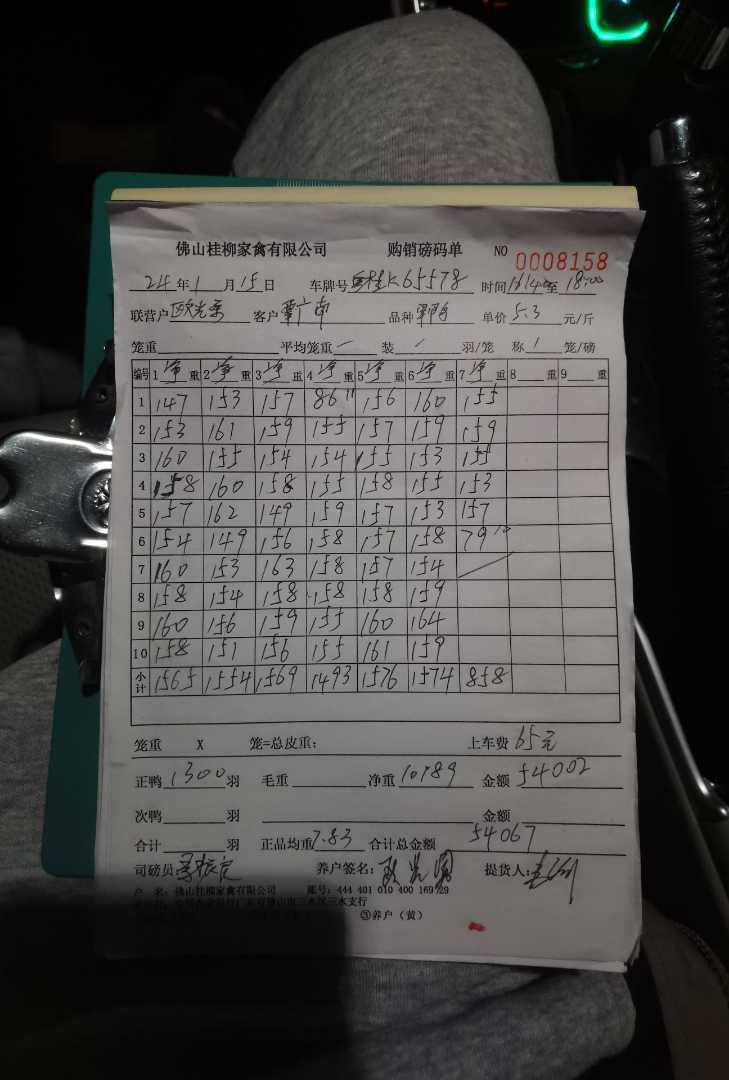 佛山桂柳家禽有限公司 购销磅码单 NO 0008158
24年1月15日 车牌号 K65578 时间 至 18:00
联营户 客户 覃广南 品种 单价 5.3 元/斤
笼重 平均笼重 一 装 / 羽/笼 称 1 笼/磅
编号 1 净 重 2 净 重 3 净 重 4 净 重 5 净 重 6 净 重 7 净 重 8 重 9 重
1 147 153 157 86 11 156 160 155
2 153 161 159 155 157 159 159
3 160 155 154 154 155 153 155
4 158 160 158 155 158 155 153
5 157 162 149 159 157 153 157
6 154 149 156 158 157 158 79 10
7 160 153 163 158 157 154
8 158 154 158 158 158 159
9 160 156 159 155 160 164
10 158 151 156 155 161 159
小计 1565 1554 1569 1493 1576 1574 858
笼重 X 笼=总皮重: 上车费 65元
正鸭 1300 羽 毛重 净重 10189 金额 54002
次鸭 羽 金额
合计 羽 正品均重 7.83 合计总金额 54067
司磅员 养户签名: 提货人:
户 名: 佛山桂柳家禽有限公司 账号: 444 401 010 400 169 29
③养户（黄）